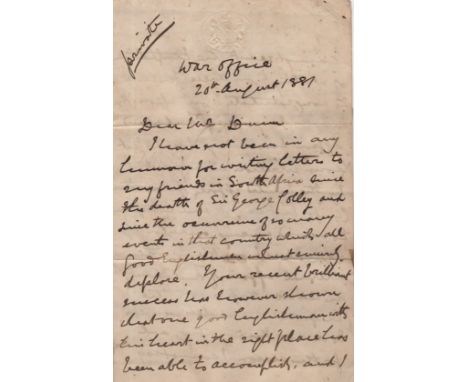 private
War Office
20th August 1881
Dear Mr Dunn
I have not been in any
humour for writing letters to
my friends in South Africa since
the death of Sir George Colley and
since the occurrence of so many
events in that country which all
good Englishmen must sincerely
deplore. Your recent brilliant
success has however shown
that one good Englishman with
his heart in the right place has
been able to accomplish, and I